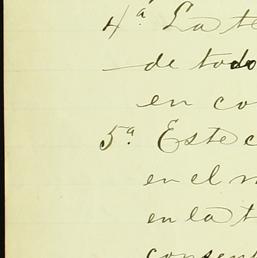 4ª La te
de todo
en co
5ª Este c
en el n
en la t
consen